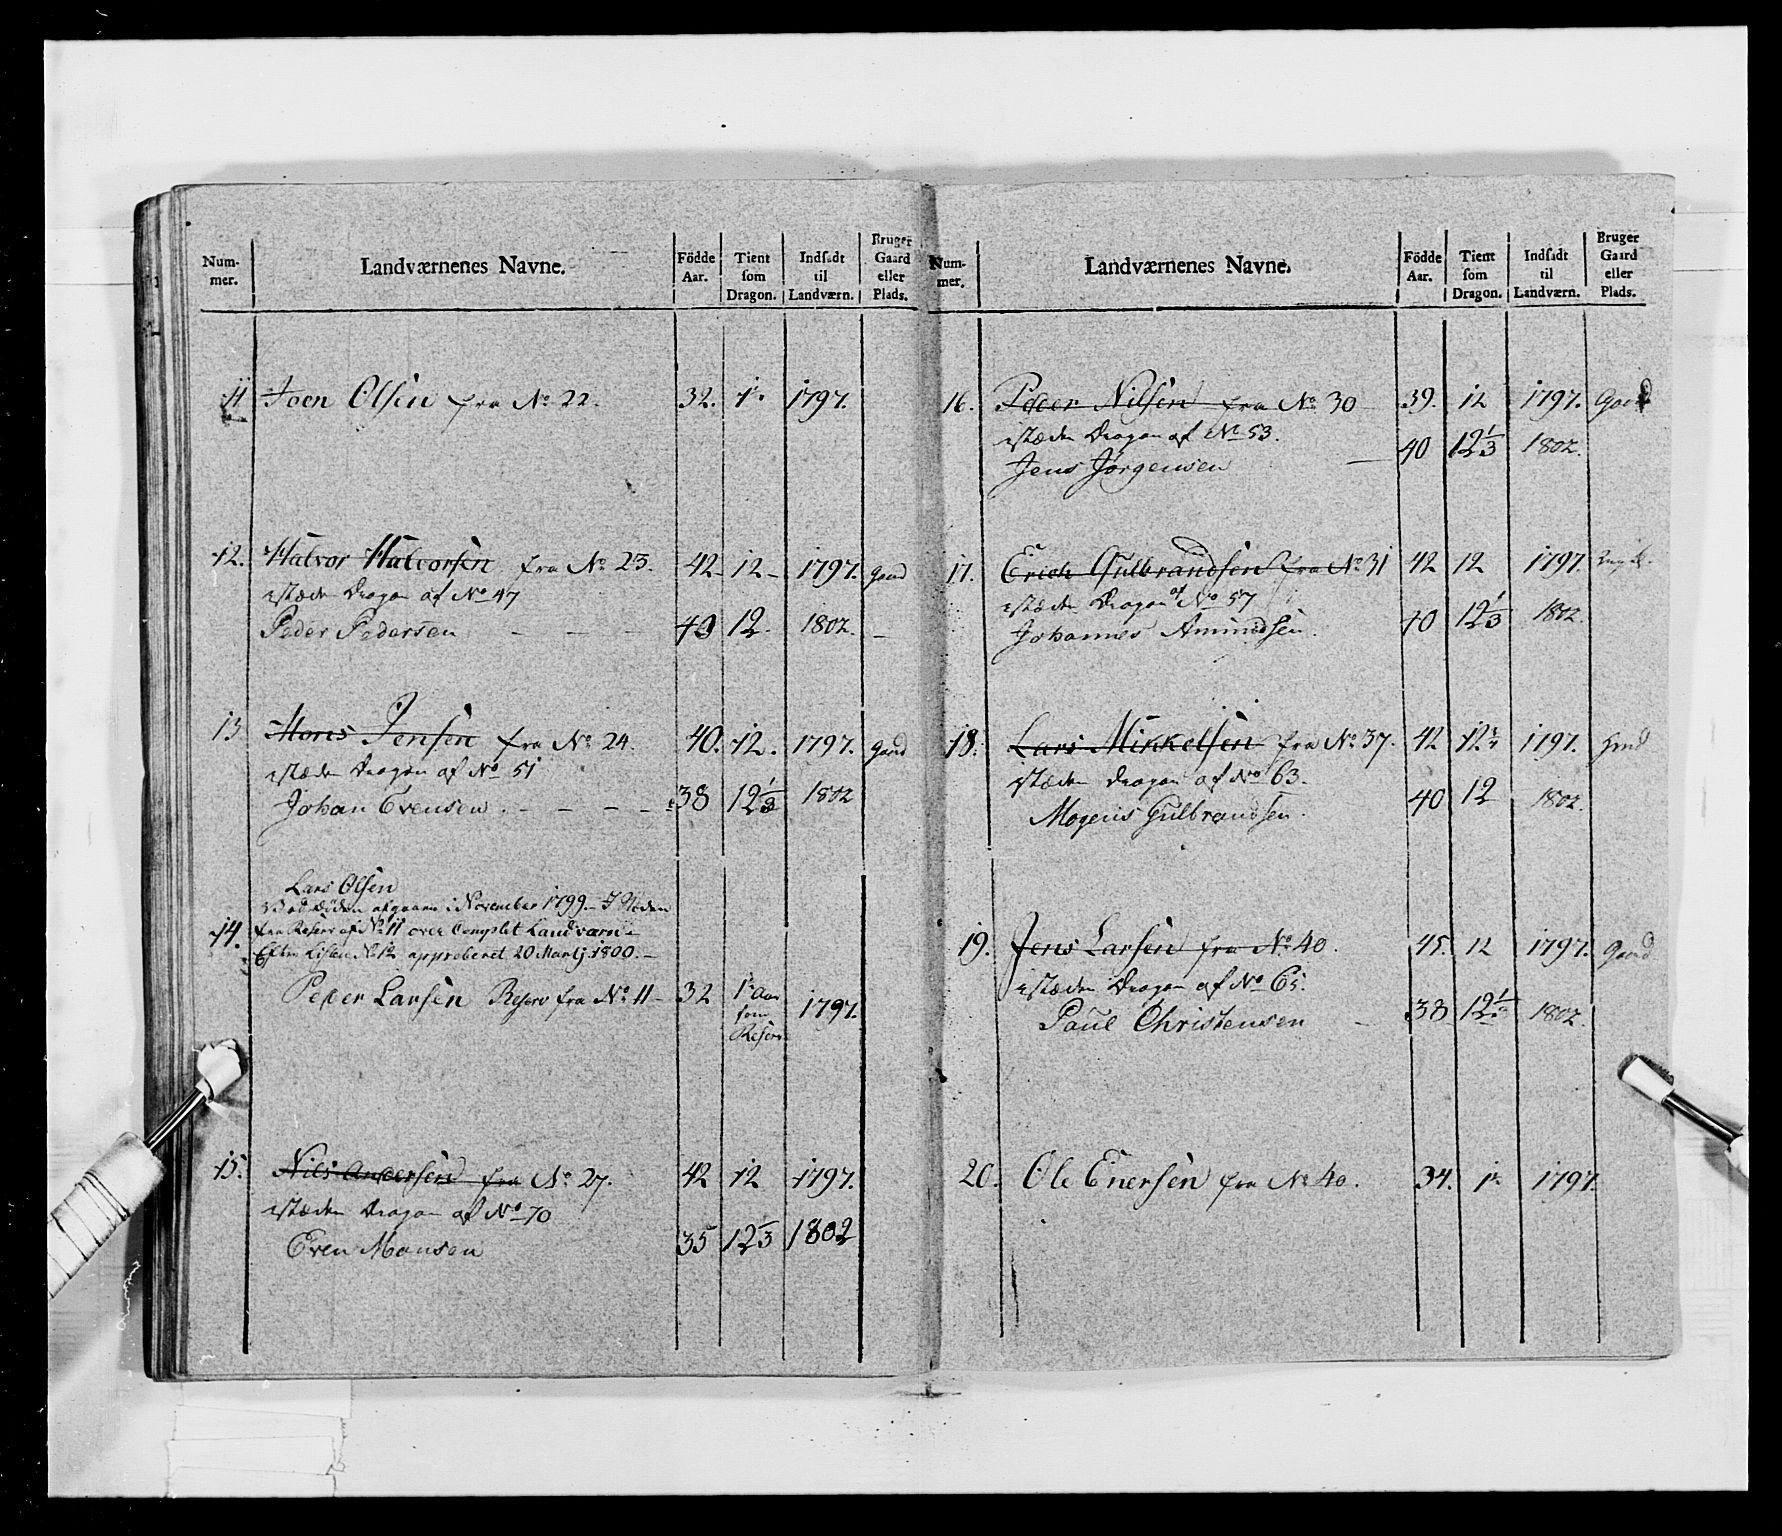 Num-
mer.
Landværnenes Navne.
Födde
Aar.
Tient
som
Dragon.
Indsadt
til
Landværn.
Bruger
Gaard
eller
Plads.
11 Joen Olsen fra No. 22. 32. 1797.
12. Halvor Halvorsen fra No. 23. 42 12 1797. Gaard
istæden Dragon af No 47
Peder Pedersen 40 12. 1802.
13 Hans Jensen fra No. 24. 40. 12. 1797. Gaard
istæden Dragon af No 51
Johan Evensen 38 12 1/3 1802
Lars Olsen
Ved Døden afgaaen i November 1799. I Steden
14. fra Reserv af No 11 over Complet Landværn
Efter Listen approberet 20 Martj 1800.
Peder Larsen Reserv fra No. 11 32 Aar 1797.
som
Reserv
15. Nils Andersen fra No. 27. 42 12 1797.
istæden Dragon af No 70
Even Monsen 35 12 1/3 1802
Num-
mer.
Landværnenes Navne.
Födde
Aar.
Tient
som
Dragon.
Indsadt
til
Landværn.
Bruger
Gaard
eller
Plads.
16. Peder Nilsen fra No. 30 39. 12 1797. Gaard
istæden Dragon af No 53.
Jens Jørgensen 40 12 1/3 1802.
17. Erich Gulbrandsen fra No. 31 42 12 1797.
istæden Dragon af No 57
Johannes Amundsen. 40 12 1/3 1802.
18. Lars Mikkelsen fra No. 37. 42 12 1797. Gaard
istæden Dragon af No 63.
Mogens Gulbrandsen. 40 12 1802.
19. Jens Larsen fra No. 40. 45. 12 1797. Gaard
istæden Dragon af No 65.
Paul Christensen 38 12 1/3 1802.
20. Ole Enersen fra No. 40. 34. 1797.